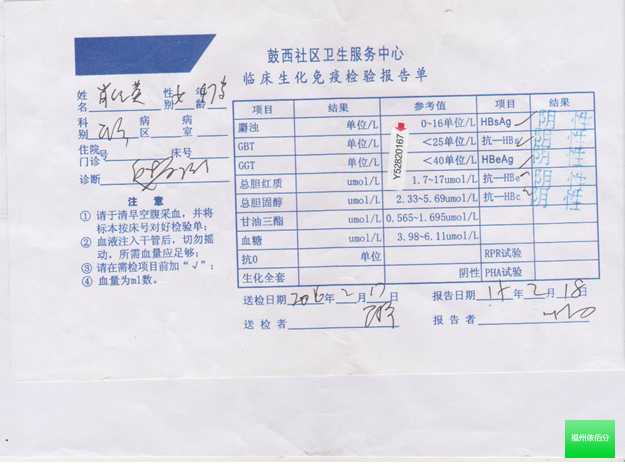 鼓西社区卫生服务中心
临床生化免疫检验报告单
姓名 性别 女 年龄
科别 病区 病室
住院号 门诊 床号
诊断
注 意
① 请于清早空腹采血，并将标本按床号对好检验单；
② 血液注入干管后，切勿摇动，所需血量应足够；
③ 请在需检项目前加“√”；
④ 血量为ml数。
项目 结果 参考值 项目 结果
麝浊 单位/L 0~16单位/L HBsAg 阴 性
GBT 单位/L <25单位/L 抗—HBs 阴 性
GGT 单位/L <40单位/L HBeAg 阴 性
总胆红质 umol/L 1.7~17umol/L 抗—HBe 阴 性
总胆固醇 umol/L 2.33~5.69umol/L 抗—HBc 阴 性
甘油三酯 umol/L 0.565~1.695umol/L
血糖 umol/L 3.98~6.11umol/L
抗O 单位 RPR试验
生化全套 阴性 PHA试验
Y52820167
送检日期 2016 年 2 月 17 日 报告日期 年 2 月 18 日
送检者 报告者
福州依佰分